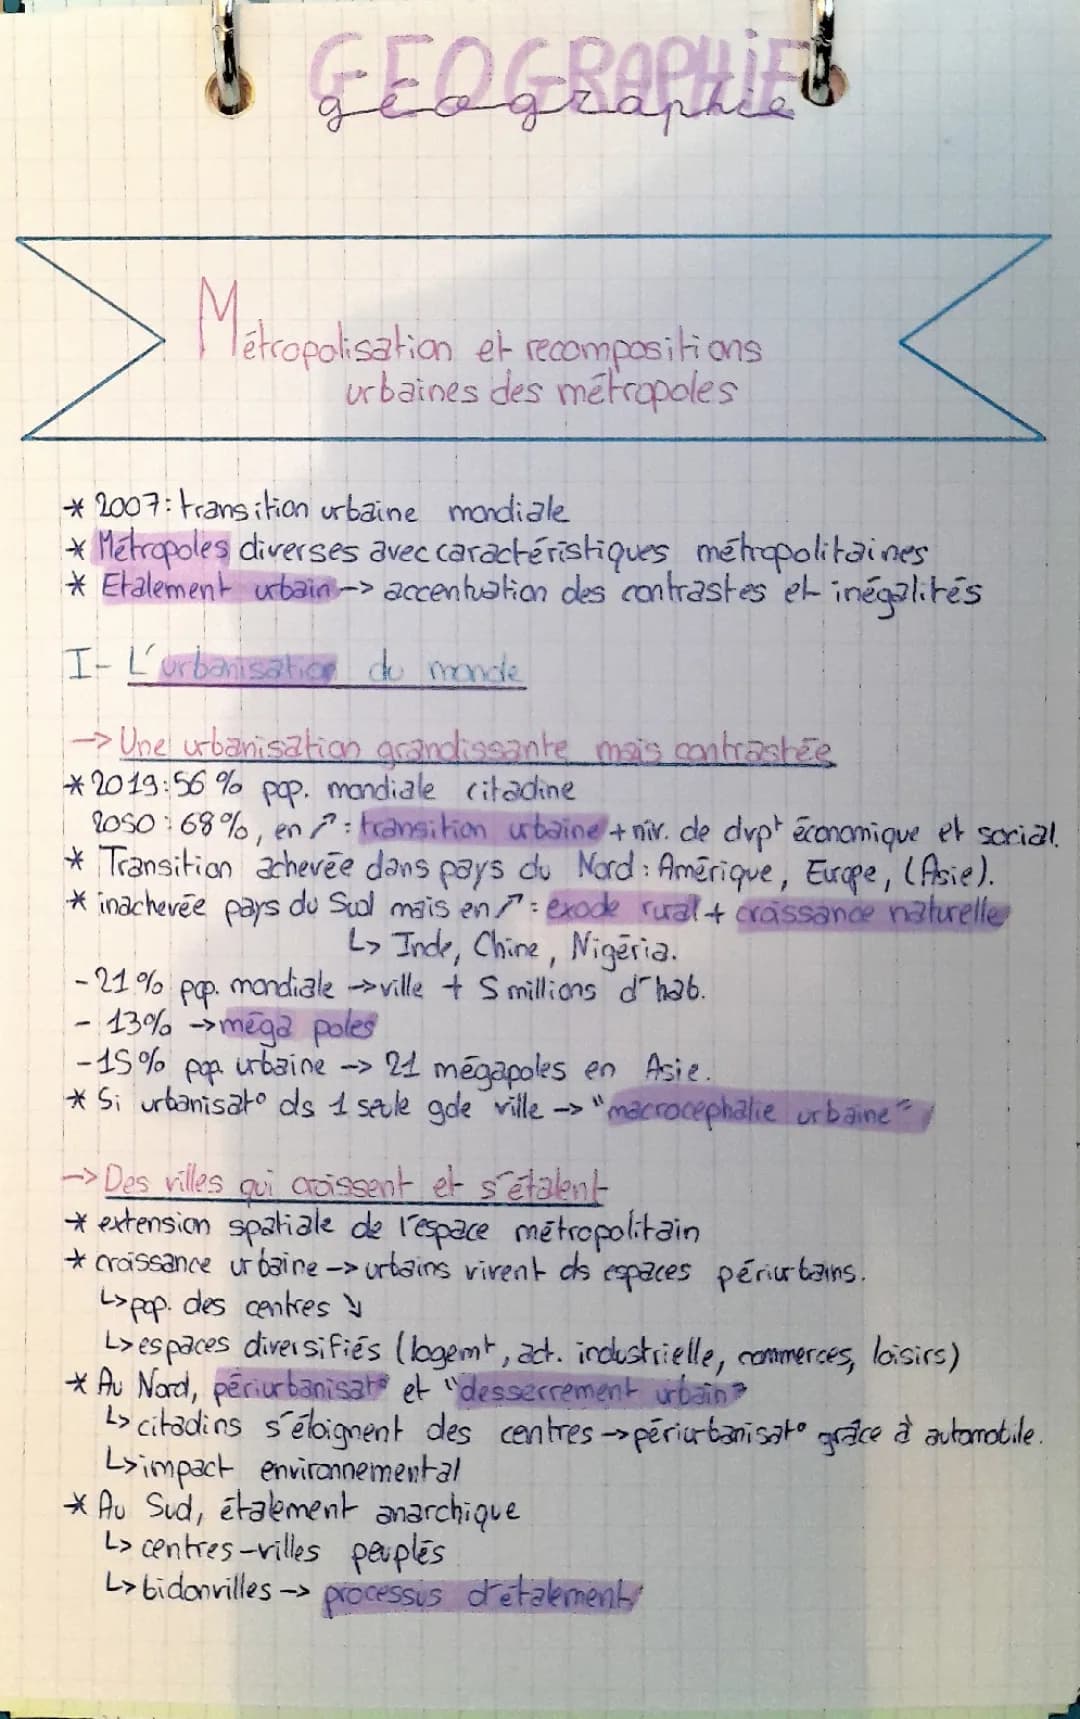 GEOGRAPHiE
géographie
Métropolisation et recompositions
urbaines des métropoles
* 2007: transition urbaine mondiale
* Métropoles diverses avec caractéristiques métropolitaines
* Etalement urbain --> accentuation des contrastes et inégalités
I- L'urbanisation du monde
--> Une urbanisation grandissante mais contrastée
* 2019: 56 % pop. mondiale citadine
2050 : 68%, en ↗ : transition urbaine + niv. de dvpt économique et social.
* Transition achevée dans pays du Nord : Amérique, Europe, (Asie).
* inachevée pays du Sud mais en ↗ : exode rural + croissance naturelle
↳ Inde, Chine, Nigéria.
- 21 % pop. mondiale -> ville + 5 millions d'hab.
- 13% -> méga poles
- 15 % pop. urbaine --> 21 mégapoles en Asie.
* Si urbanisat° ds 1 seule gde ville --> "macrocéphalie urbaine"
--> Des villes qui croissent et s'étalent
* extension spatiale de l'espace métropolitain
* croissance urbaine --> urbains vivent ds espaces périurbains.
↳ pop. des centres ↘
↳ espaces diversifiés (logemt, act. industrielle, commerces, loisirs)
* Au Nord, périurbanisat° et "desserrement urbain"
↳ citadins s'éloignent des centres -> périurbanisat° grâce à automobile.
↳ impact environnemental
* Au Sud, étalement anarchique
↳ centres-villes peuplés
↳ bidonvilles --> processus d'étalement